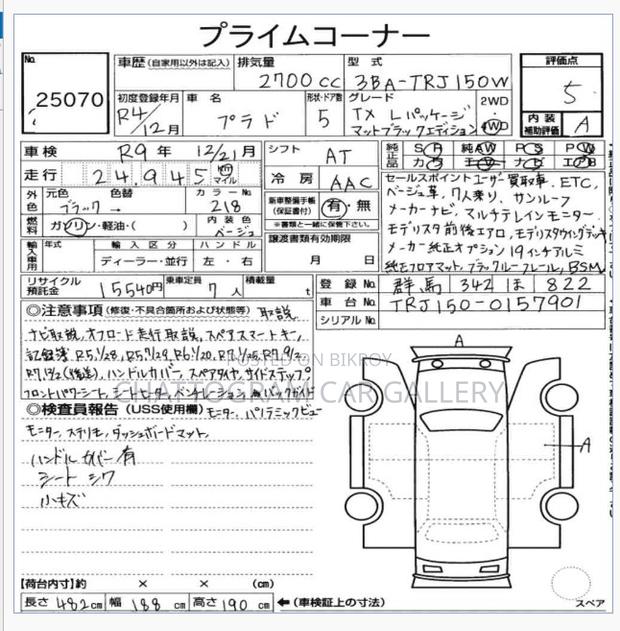 プライムコーナー
No. 25070
車歴 (自家用以外は記入)
排気量 2700cc
型式 3BA-TRJ150W
評価点 5
初度登録年月 R4/12月
車名 プラド
形状・ドア数 5
グレード TX Lパッケージ
マットブラックエディション
2WD
4WD
内装補助評価 A
車検 R9年 12/21月
シフト AT
純正品 SR AW PS PW
カワ エアB
走行 24,945 km マイル
冷房 AAC
外色 元色 ブラック → 色替
カラーNo 218
新車整備手帳 (保証書付) 有・無
※書類と一緒に保管下さい。
燃料 ガソリン・軽油・( )
内装色 ベージュ
輸入車用 年式 輸入区分 ディーラー・並行 ハンドル 左・右
譲渡書類有効期限
月 日
セールスポイント ユーザー買取車、ETC、
ベージュ革、7人乗り、サンルーフ
メーカーナビ、マルチテレインモニター
モデリスタ前後エアロ、モデリスタウイングデッキ
メーカー純正オプション19インチアルミ
純正フロアマット、ブラックルーフレール、BSM
リサイクル預託金 15540円
乗車定員 7人
積載量 t
登録No. 群馬 342 ほ 822
車台No. TRJ150-0157901
シリアルNo.
◎注意事項 (修復・不具合箇所および状態等) 取説
ナビ取説、オフロード走行取説、スペアスマートキー
記録簿 R5.1/28, R5.7/29, R6.1/20, R7.1/25, R7.9/2
ハンドルカバー、スペアタイヤ、サイドステップ
フロントパワーシート、シートヒーター、ベンチレーション
◎検査員報告 (USS使用欄) モニター、パノラミックビュー
モニター、ステリモ、ダッシュボードマット、
ハンドルカバー有
シートシワ
小キズ
POSTED ON BIKROY
CHATTOGRAM CAR GALLERY
A
A
【荷台内寸】約 × × (cm)
長さ 482cm 幅 188cm 高さ 190cm ←(車検証上の寸法)
スペア